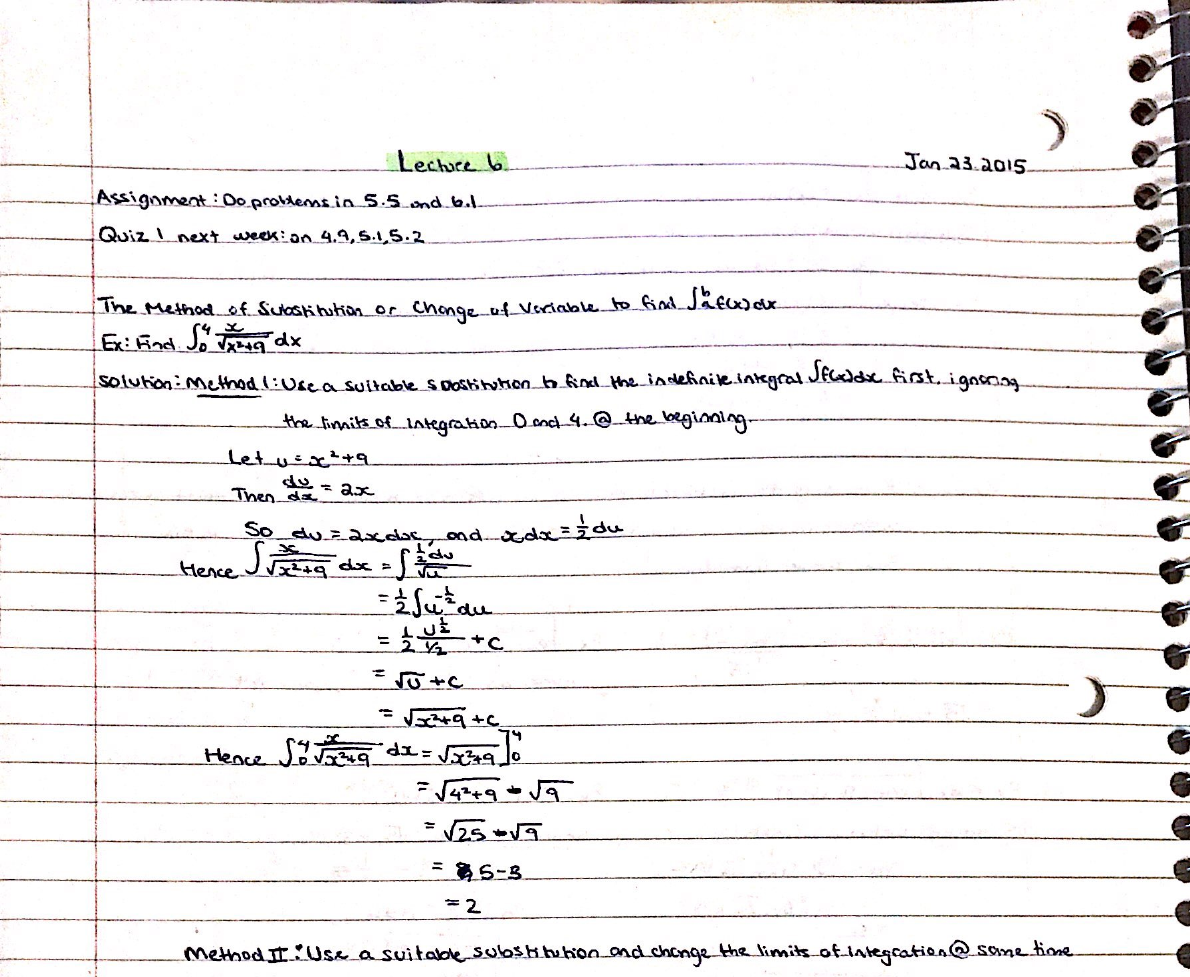 Lecture 6 Jan 23.2015
Assignment: Do problems in 5.5 and 6.1
Quiz 1 next week: on 4.9, 5.1, 5.2
The Method of Substitution or Change of Variable to find ∫ₐᵇ f(x) dx
Ex: Find ∫₀⁴ x/√(x²+9) dx
Solution: Method 1: Use a suitable substitution to find the indefinite integral ∫f(x)dx first, ignoring
the limits of integration 0 and 4. @ the beginning.
Let u = x²+9
Then du/dx = 2x
So du = 2xdx, and xdx = ½ du
Hence ∫ x/√(x²+9) dx = ∫ ½du/√u
= ½ ∫ u^(-½) du
= ½ u^(½)/(1/2) + C
= √u + C
= √(x²+9) + C
Hence ∫₀⁴ x/√(x²+9) dx = √(x²+9) ]₀⁴
= √(4²+9) - √9
= √25 - √9
= 5-3
= 2
Method II: Use a suitable substitution and change the limits of integration @ same time